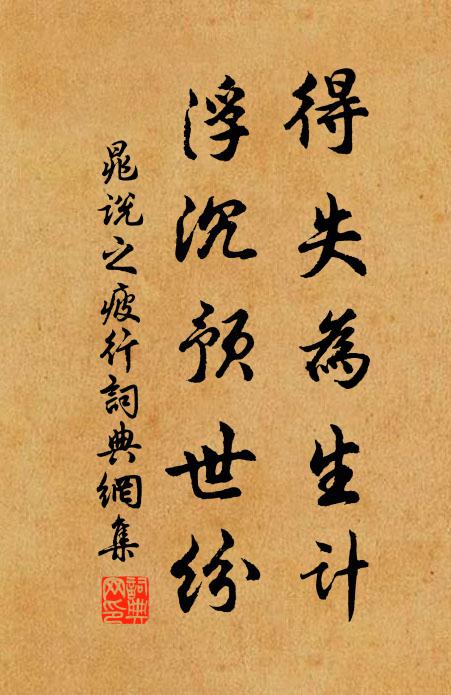 得失為生計
浮沉預世紛
晁說之疲行詞典網集
詞典
網印